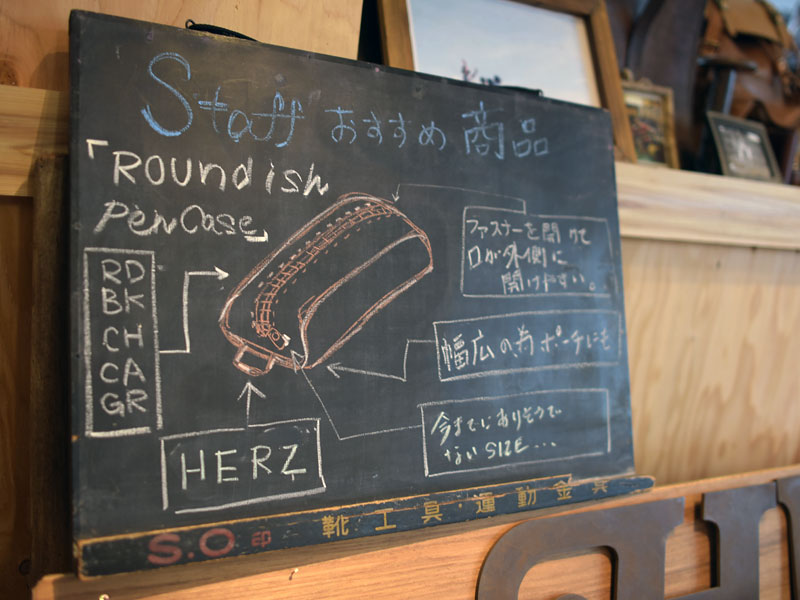 Staff おすすめ 商品
「Roundish
Pen Case」
RD
BK
CH
CA
GR
HERZ
ファスナーを開けて
口が外側に
開けやすい。
幅広の為ポーチにも
今までにありそうで
ない SIZE...
S.O印 靴工具・運動金具